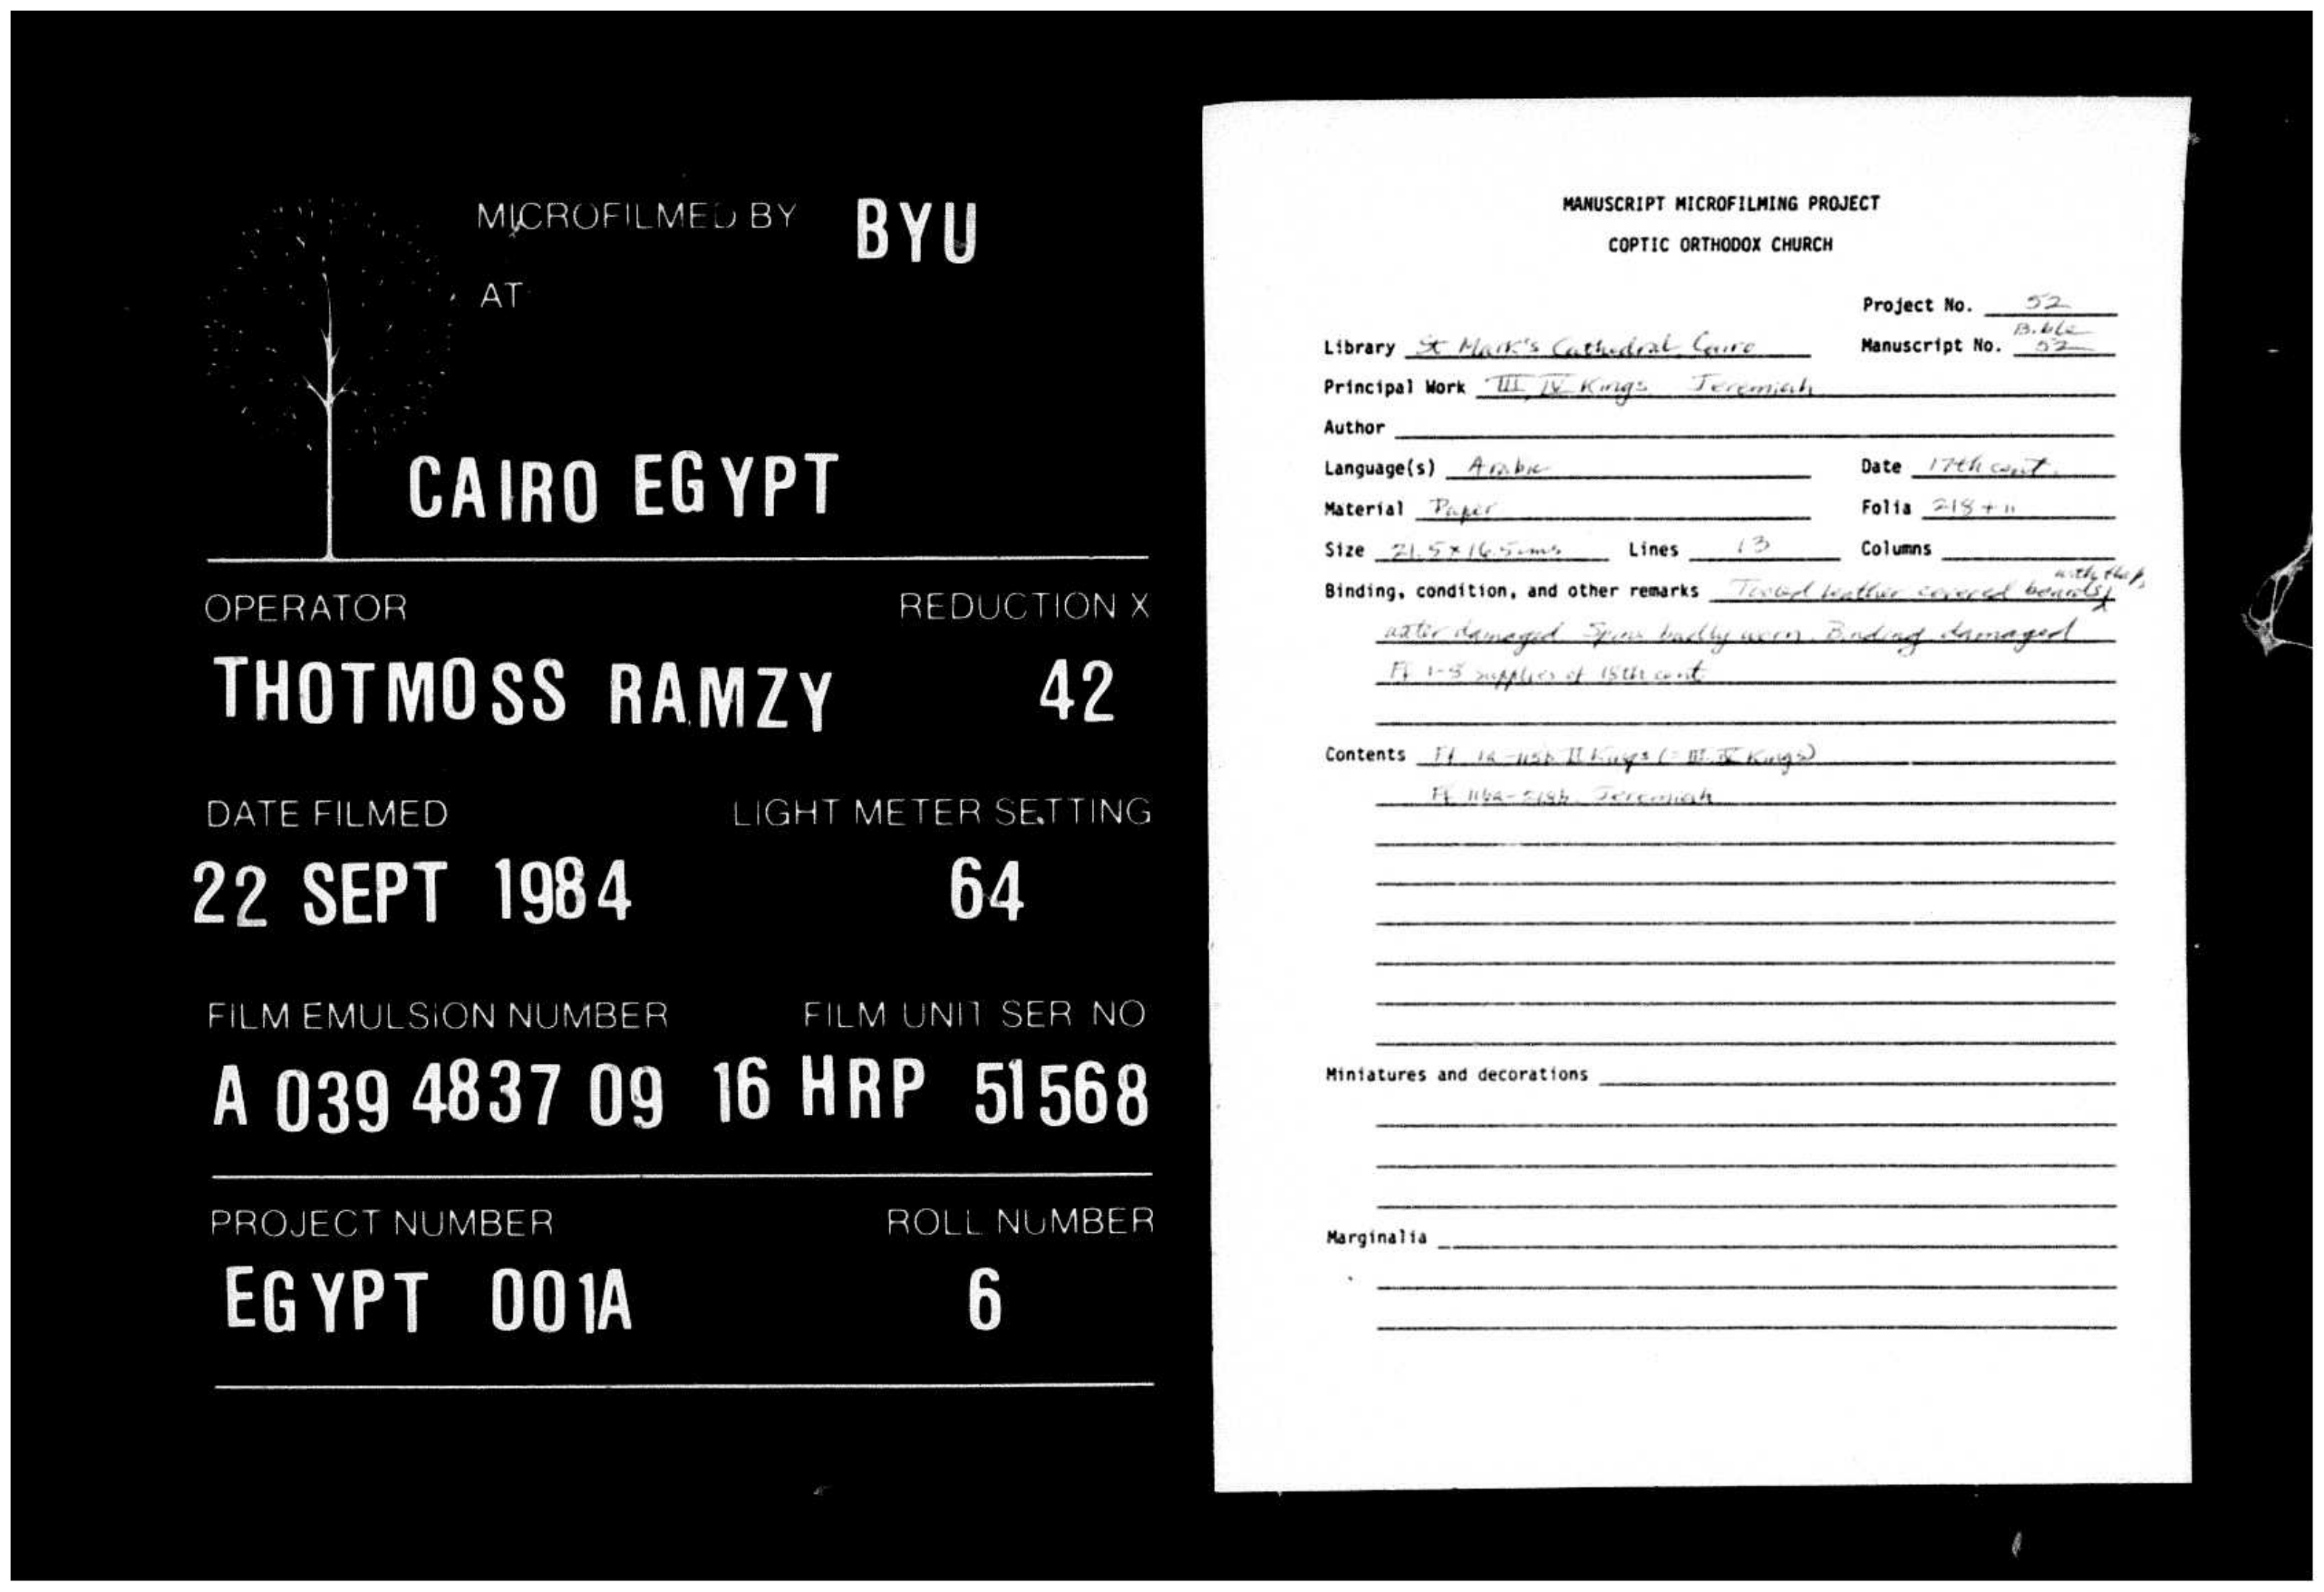 MICROFILMED BY BYU
AT
CAIRO EGYPT
OPERATOR REDUCTION X
THOTMOSS RAMZY 42
DATE FILMED LIGHT METER SETTING
22 SEPT 1984 64
FILM EMULSION NUMBER FILM UNIT SER NO
A 039 4837 09 16 HRP 51568
PROJECT NUMBER ROLL NUMBER
EGYPT 001A 6
MANUSCRIPT MICROFILMING PROJECT
COPTIC ORTHODOX CHURCH
Project No. 52
Bible
Library St Mark's Cathedral Cairo Manuscript No. 52
Principal Work III, IV Kings Jeremiah
Author
Language(s) Arabic Date 17th cent.
Material Paper Folia 218 +
Size 21.5 x 16.5 cms Lines 13 Columns
with flap,
Binding, condition, and other remarks Tooled leather covered boards,
water damaged Spine badly worn. Binding damaged
Ff 1-8 supplies of 18th cent.
Contents Ff. 1a-115b II Kings (= III, IV Kings)
Ff 116a-218b Jeremiah
Miniatures and decorations
Marginalia